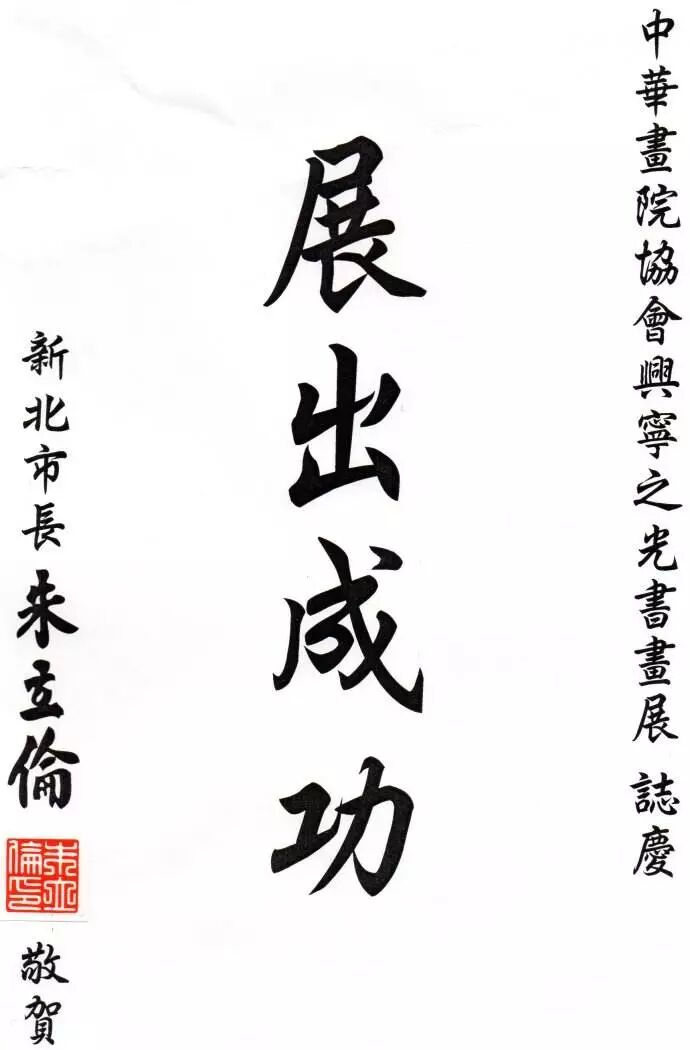 中華畫院協會興寧之光書畫展 誌慶
展出成功
新北市長朱立倫
朱立倫印
敬賀